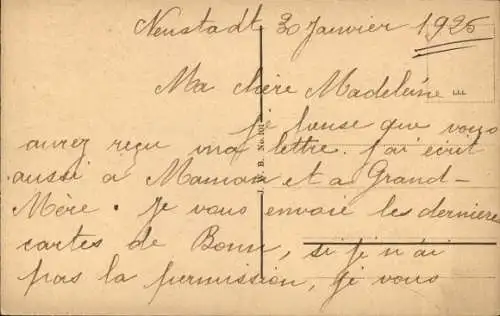 Neustadt 30 Janvier 1926
Ma chère Madeleine
je pense que vous
aurez reçu ma lettre. J'ai écrit
aussi à Maman et à Grand-
Mère. Je vous envoie les dernière
cartes de Bonn, si je n'ai
pas la permission, je vous
J. B. No. 101